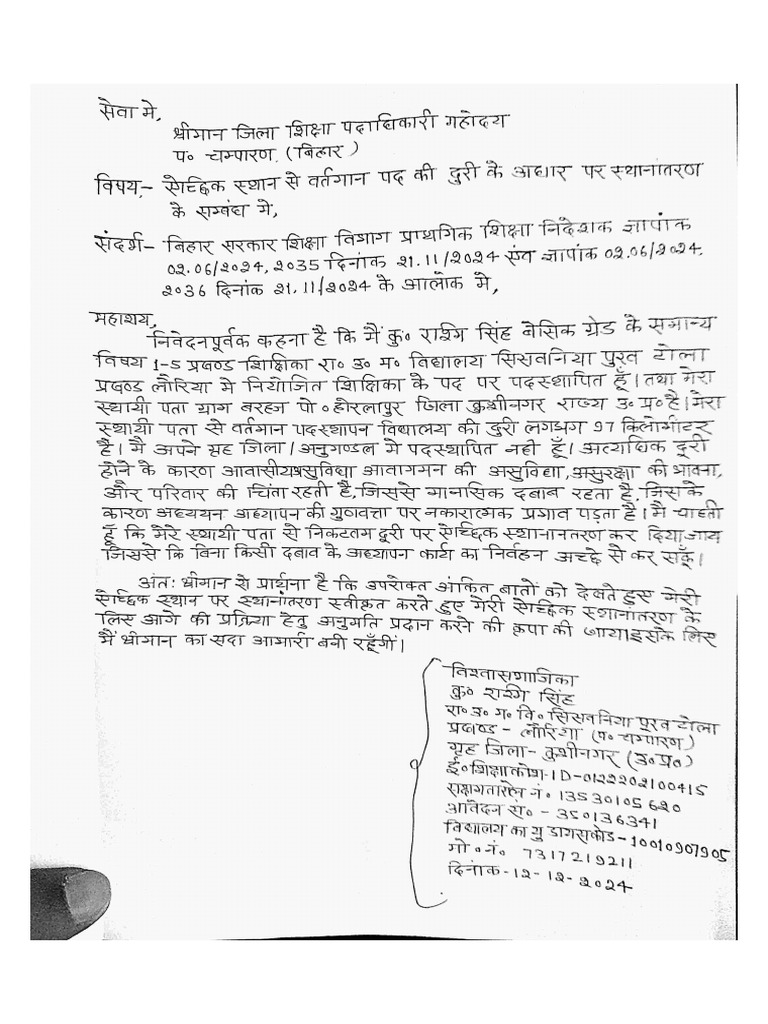 सेवा मे,
श्रीमान जिला शिक्षा पदाधिकारी महोदय
प० चम्पारण (बिहार)
विषय:- ऐच्छिक स्थान से वर्तमान पद की दुरी के आधार पर स्थानांतरण
के सम्बंध मे,
संदर्भ- बिहार सरकार शिक्षा विभाग प्राथमिक शिक्षा निदेशक ज्ञापांक
02.06/2024, 2035 दिनांक 21.11/2024 एंव ज्ञापांक 02.06/2024,
2036 दिनांक 21.11/2024 के आलोक मे,
महाशय,
निवेदनपूर्वक कहना है कि मैं कु० राश्मि सिंह बेसिक ग्रेड के समान्य
विषय 1-5 प्रखण्ड शिक्षिका रा० उ० म० विद्यालय सिसवनिया पुरब टोला
प्रखण्ड लौरिया मे नियोजित शिक्षिका के पद पर पदस्थापित हूँ। तथा मेरा
स्थायी पता ग्राम बरहज पो० होरलापुर जिला कुशीनगर राज्य उ० प्र० है। मेरा
स्थायी पता से वर्तमान पदस्थापन विद्यालय की दुरी लगभग 97 किलोमीटर
है। मै अपने गृह जिला / अनुमण्डल मे पदस्थापित नही हूँ। अत्यधिक दूरी
होने के कारण आवासीय असुविधा आवागमन की असुविधा, असुरक्षा की भावना,
और परिवार की चिंता रहती है, जिससे मानसिक दबाब रहता है, जिस के
कारण अध्ययन अध्यापन की गुणवत्ता पर नकारात्मक प्रभाव पड़ता है। मै चाहती
हूँ कि मेरे स्थायी पता से निकटतम दूरी पर ऐच्छिक स्थानानतरण कर दिया जाय
जिससे कि बिना किसी दबाव के अध्यापन कार्य का निर्वहन अच्छे से कर सकूँ।
अंत: श्रीमान से प्रार्थना है कि उपरोक्त अंकित बातों को देखते हुए मेरी
ऐच्छिक स्थान पर स्थानांतरण स्वीकृत करते हुए मेरी ऐच्छिक स्थानांतरण के
लिए आगे की प्रक्रिया हेतु अनुमति प्रदान करने की कृपा की जाय। इसके लिए
मैं श्रीमान का सदा आभारी बनी रहूँगीं।
विश्वासभाजिका
कु० राश्मि सिंह
रा० उ० म० वि० सिसवनिया पूरब टोला
प्रखण्ड - लौरिया (प० चम्पारण)
गृह जिला- कुशीनगर (उ० प्र०)
ई० शिक्षाकोश-ID-0122202100415
सक्षमता रोल नं० 13530105620
आवेदन सं० - 350136341
विद्यालय का यु डायसकोड-10010907905
मो० नं० 7317219211
दिनांक-12-12-2024